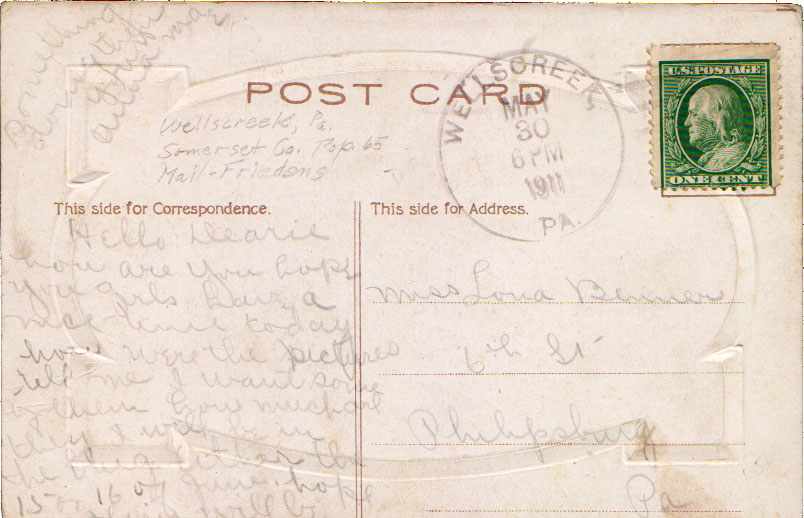 Something
POST CARD
Wellscreek, Pa.
Somerset Co. Pop. 65
Mail-Friedens
WELLSCREEK,
MAY
30
6 PM
1911
PA.
U.S. POSTAGE
ONE CENT
This side for Correspondence.
Hello Dearie
how are you hope
you girls have a
nice time today
how were the pictures
tell me I want some
of them how much are
they I will be in
the either the
15 or 16 of June hope
will be
This side for Address.
Miss Lona Benner
6th St
Philipsburg
Pa